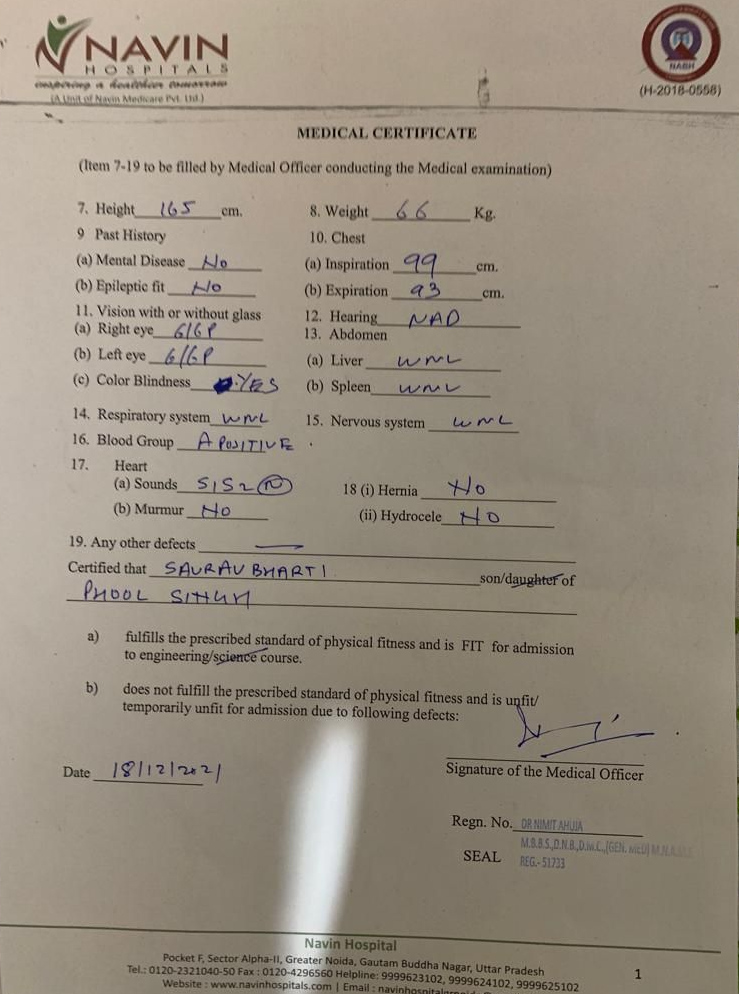 NAVIN
HOSPITALS
inspiring a healthier tomorrow
(A Unit of Navin Medicare Pvt. Ltd.)
NABH
(H-2018-0558)
MEDICAL CERTIFICATE
(Item 7-19 to be filled by Medical Officer conducting the Medical examination)
7. Height 165 cm. 8. Weight 66 Kg.
9 Past History 10. Chest
(a) Mental Disease No (a) Inspiration 99 cm.
(b) Epileptic fit No (b) Expiration 93 cm.
11. Vision with or without glass 12. Hearing NAD
(a) Right eye 6/6P 13. Abdomen
(b) Left eye 6/6P (a) Liver WNL
(c) Color Blindness YES (b) Spleen WNL
14. Respiratory system WNL 15. Nervous system WNL
16. Blood Group A POSITIVE
17. Heart
(a) Sounds S1S2 N 18 (i) Hernia No
(b) Murmur No (ii) Hydrocele NO
19. Any other defects —
Certified that SAURAV BHARTI son/daughter of
PHOOL SINGH
a) fulfills the prescribed standard of physical fitness and is FIT for admission
to engineering/science course.
b) does not fulfill the prescribed standard of physical fitness and is unfit/
temporarily unfit for admission due to following defects:
Date 18/12/2021
Signature of the Medical Officer
Regn. No. DR NIMIT AHUJA
M.B.B.S.,D.N.B.,D.M.C.,(GEN. MED)
SEAL REG.- 51733
Navin Hospital
Pocket F, Sector Alpha-II, Greater Noida, Gautam Buddha Nagar, Uttar Pradesh
Tel.: 0120-2321040-50 Fax : 0120-4296560 Helpline: 9999623102, 9999624102, 9999625102
Website : www.navinhospitals.com | Email :
1